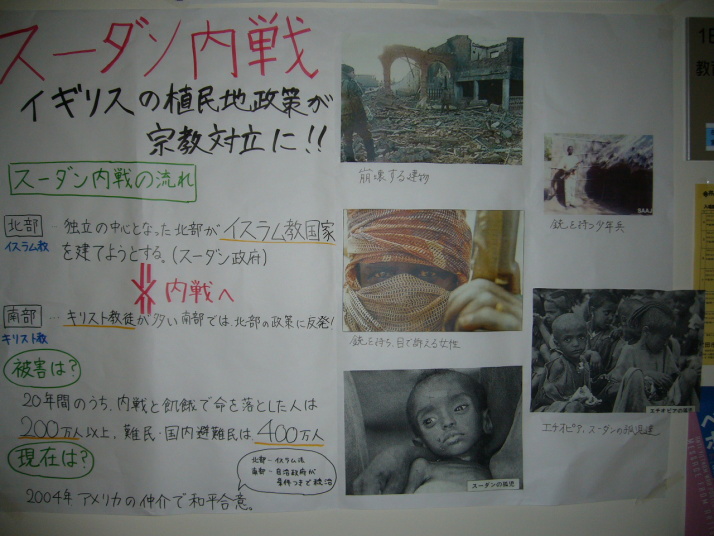 スーダン内戦
イギリスの植民地政策が
宗教対立に!!
スーダン内戦の流れ
北部 … 独立の中心となった北部がイスラム教国家
イスラム教
を建てようとする。(スーダン政府)
内戦へ
南部 … キリスト教徒が多い南部では、北部の政策に反発!
キリスト教
被害は?
20年間のうち、内戦と飢餓で命を落とした人は
200万人以上、難民・国内避難民は400万人
現在は?
北部-イスラム法
南部-自治政府が
条件つきで統治
2004年 アメリカの仲介で和平合意。
崩壊する建物
銃を持ち、目で訴える女性
スーダンの孤児
銃を持つ少年兵
エチオピアの孤児
エチオピア、スーダンの孤児達